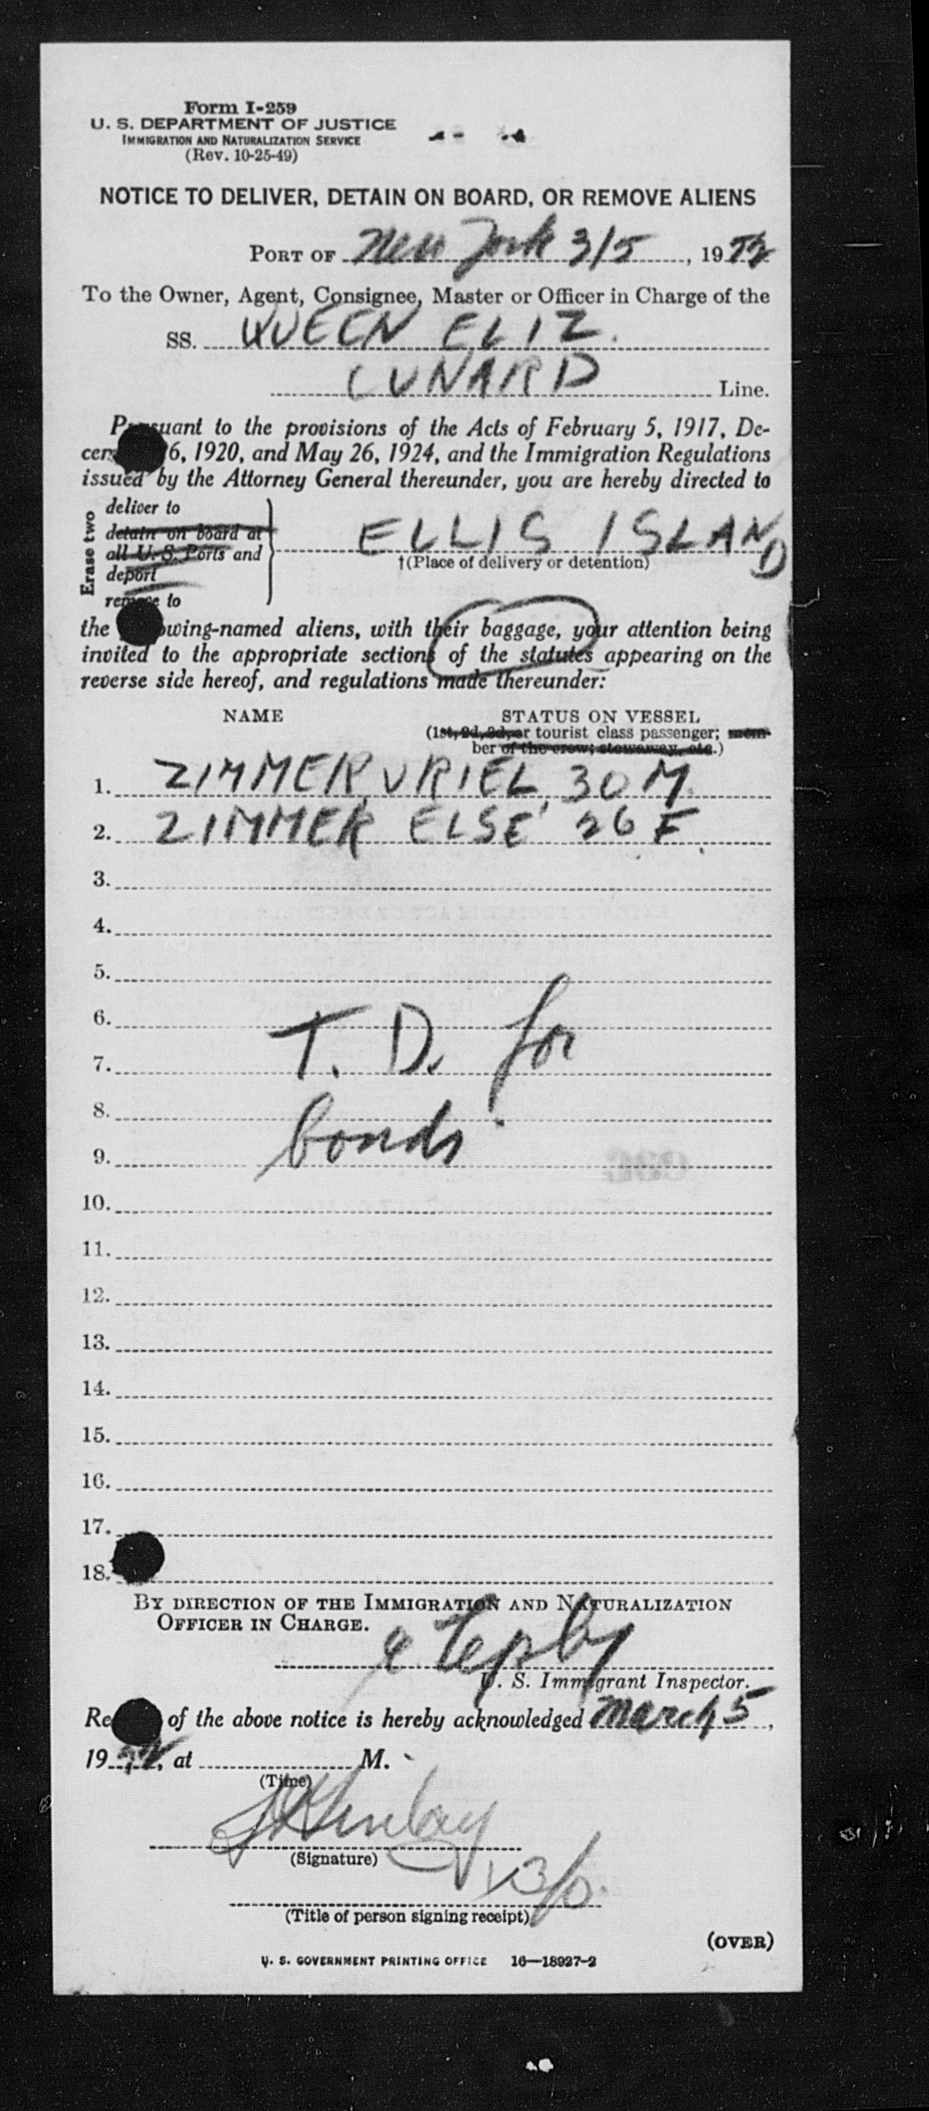 Form I-259
U. S. DEPARTMENT OF JUSTICE
IMMIGRATION AND NATURALIZATION SERVICE
(Rev. 10-25-49)
NOTICE TO DELIVER, DETAIN ON BOARD, OR REMOVE ALIENS
PORT OF New York 3/5, 19
To the Owner, Agent, Consignee, Master or Officer in Charge of the
SS. QUEEN ELIZ.
CUNARD Line.
Pursuant to the provisions of the Acts of February 5, 1917, De-
cem 6, 1920, and May 26, 1924, and the Immigration Regulations
issued by the Attorney General thereunder, you are hereby directed to
Erase two
deliver to
detain on board at
all U. S. Ports and
deport
remove to
ELLIS ISLAND
†(Place of delivery or detention)
the following-named aliens, with their baggage, your attention being
invited to the appropriate sections of the statutes appearing on the
reverse side hereof, and regulations made thereunder:
NAME STATUS ON VESSEL
(1st, 2d, 3d, or tourist class passenger; mem-
ber of the crew; stowaway, etc.)
1. ZIMMER, URIEL 30 M.
2. ZIMMER ELSE 26 F.
3.
4.
5.
6.
7. T. D. for
8.
9. bonds
10.
11.
12.
13.
14.
15.
16.
17.
18.
BY DIRECTION OF THE IMMIGRATION AND NATURALIZATION
OFFICER IN CHARGE.
U. S. Immigrant Inspector.
Re of the above notice is hereby acknowledged March 5,
19, at M.
(Time)
(Signature)
(Title of person signing receipt)
(OVER)
U. S. GOVERNMENT PRINTING OFFICE 16—18927-2